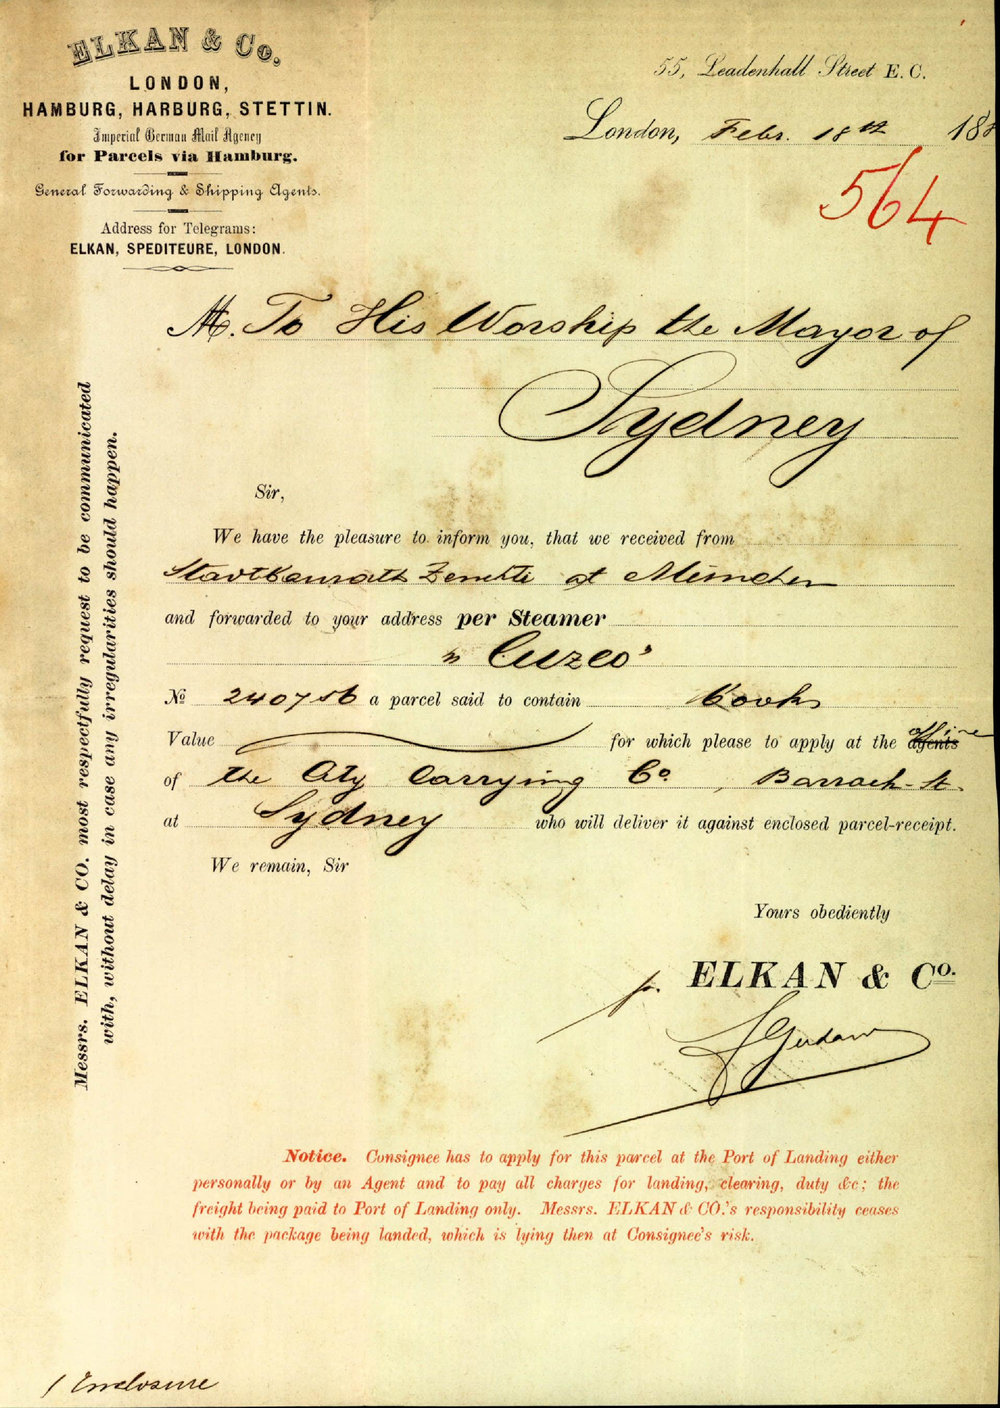 ELKAN & Co.
LONDON,
HAMBURG, HARBURG, STETTIN.
Imperial German Mail Agency
for Parcels via Hamburg.
General Forwarding & Shipping Agents.
Address for Telegrams:
ELKAN, SPEDITEURE, LONDON.
55, Leadenhall Street E. C.
London, Febr. 18th 188
564
M. To His Worship the Mayor of
Sydney
Sir,
We have the pleasure to inform you, that we received from
Stadtbaurath Zenetti at München
and forwarded to your address per Steamer
"Cuzco"
No 240756 a parcel said to contain Books
Value for which please to apply at the office agents
of the City Carrying Co, Barrack St.
at Sydney who will deliver it against enclosed parcel-receipt.
We remain, Sir
Yours obediently
p. ELKAN & Co.
Messrs. ELKAN & CO. most respectfully request to be communicated
with, without delay in case any irregularities should happen.
Notice. Consignee has to apply for this parcel at the Port of Landing either
personally or by an Agent and to pay all charges for landing, clearing, duty &c; the
freight being paid to Port of Landing only. Messrs. ELKAN & CO.'s responsibility ceases
with the package being landed, which is lying then at Consignee's risk.
1 Enclosure